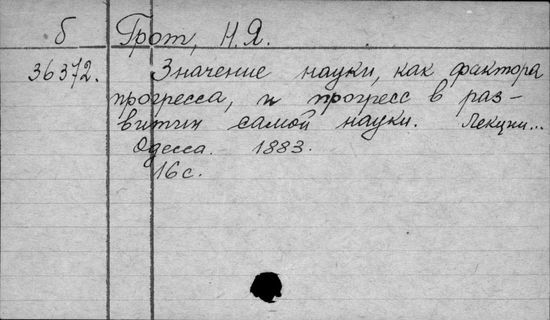 б Грот, Н.Я.
36372. Значение науки, как фактора
прогресса, и прогресс в раз-
витии самой науки. Лекции...
Одесса. 1883.
16 с.